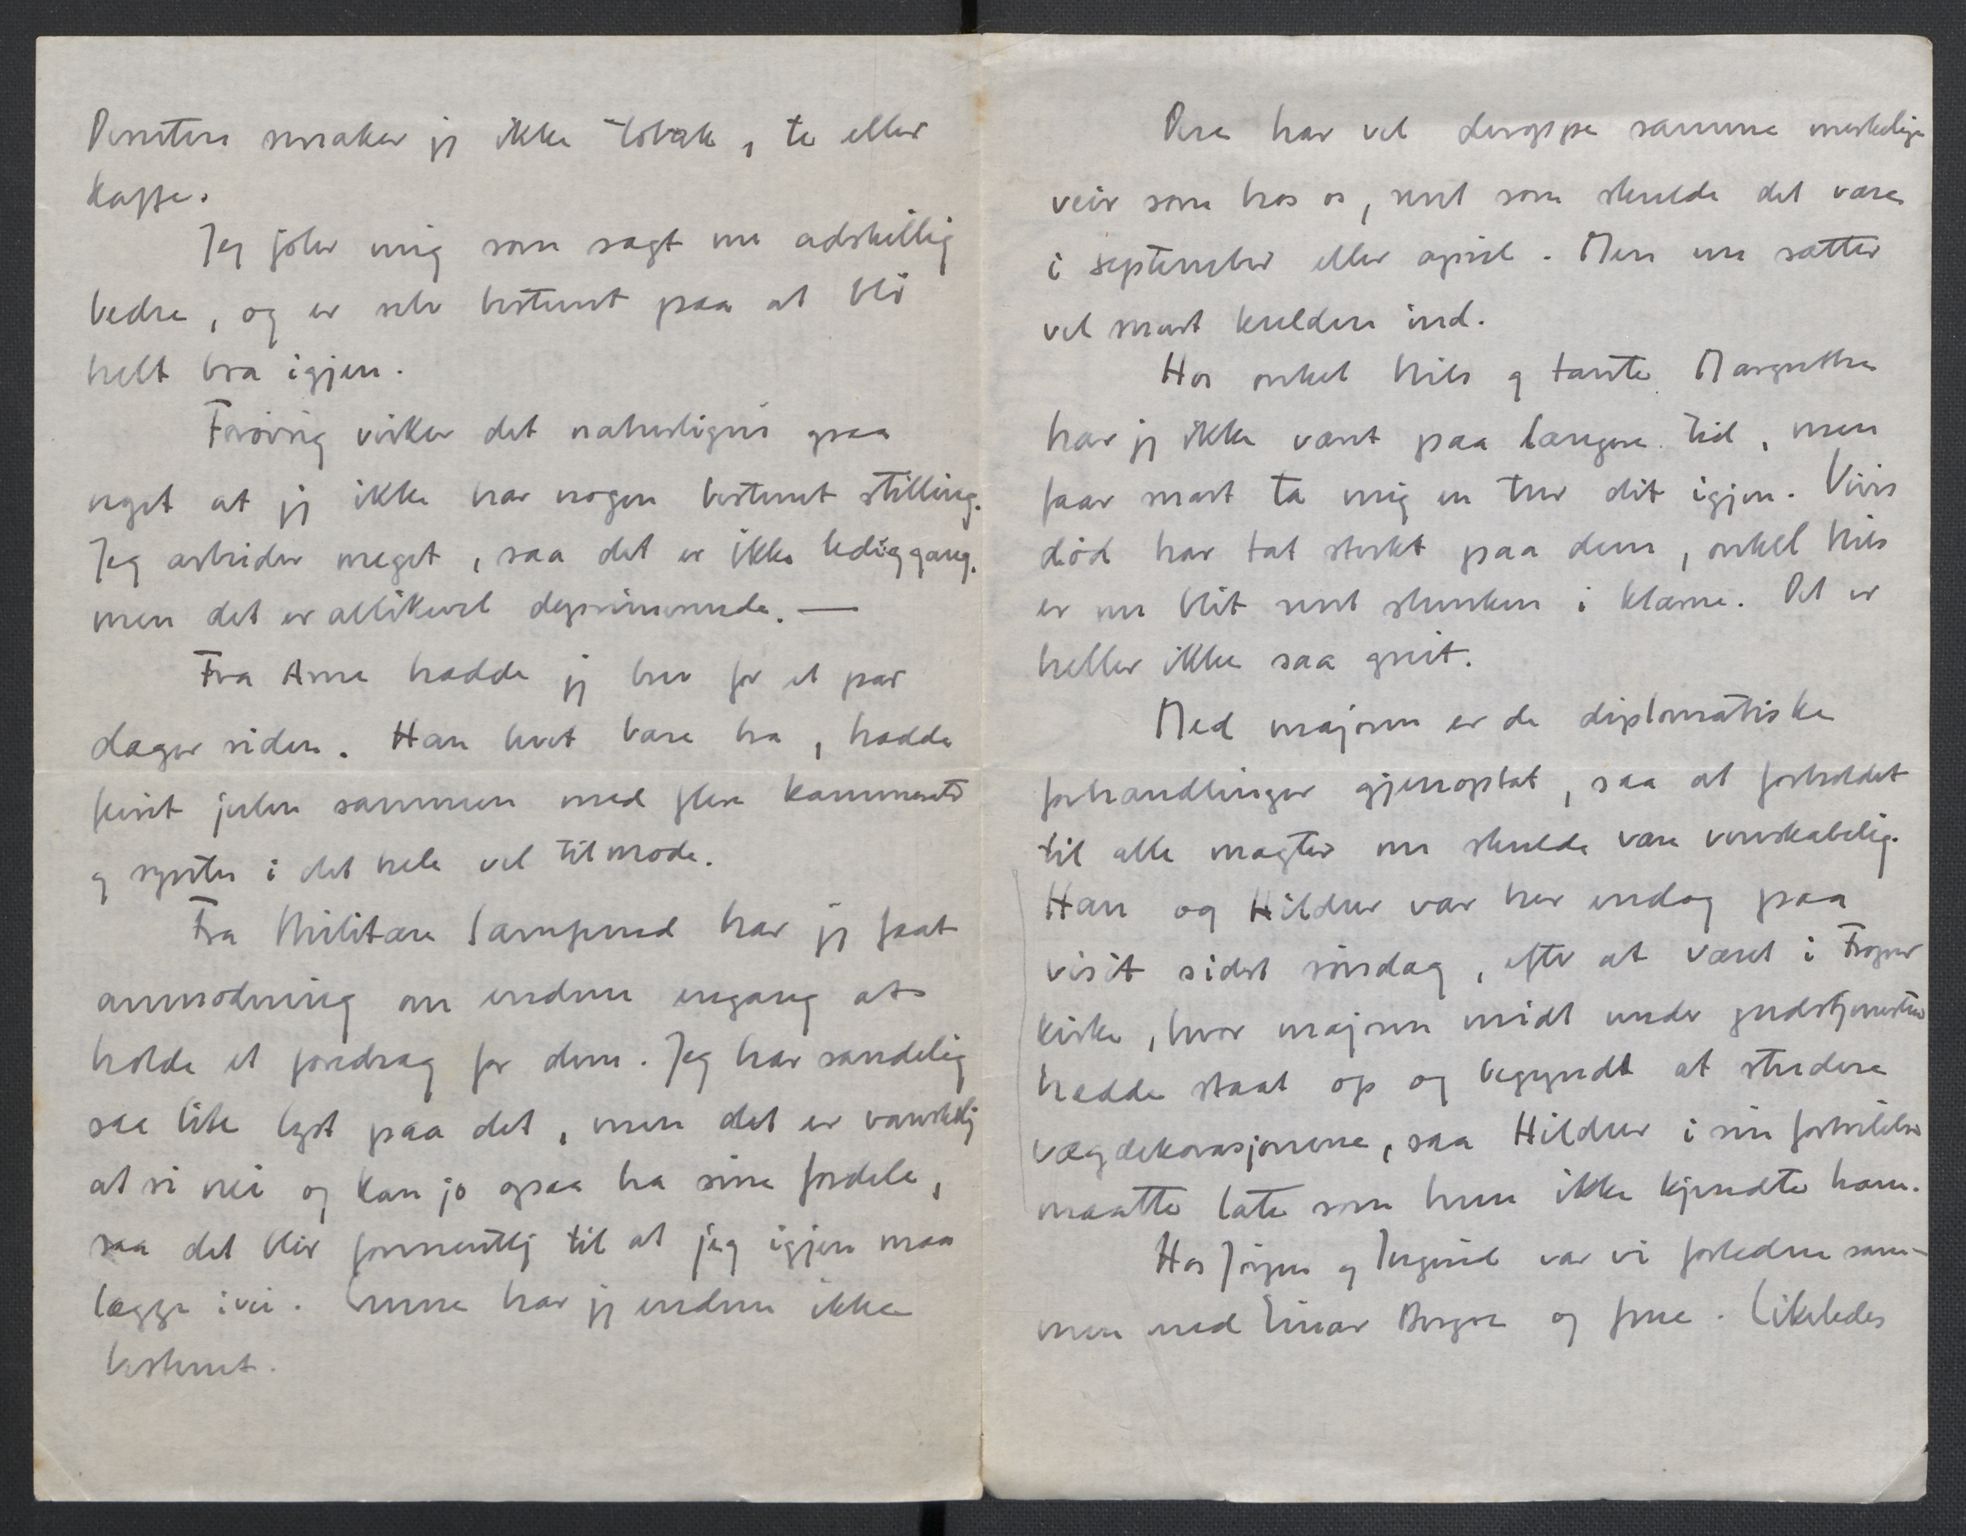 Dessuten smaker jeg ikke tobak, te eller
kaffe.
Jeg föler mig som sagt nu adskillig
bedre, og er selv bestemt paa at bli
helt bra igjen.
Forövrig virker det naturligvis ogsaa
noget at jeg ikke har nogen bestemt stilling.
Jeg arbeider meget, saa det er ikke lediggang,
men det er allikevel deprimerende. —
Fra Arne hadde jeg brev for et par
dager siden. Han hvet bare bra, hadde
feiret julen sammen med flere kammerater
og syntes i det hele vel tilmode.
Fra Militære Samfund har jeg faat
anmodning om endnu engang at
holde et foredrag for dem. Jeg har sandelig
saa lite lyst paa det, men det er vanskelig
at si nei og kan jo ogsaa ha sine fordele,
saa det blir formentlig til at jeg igjen maa
lægge ivei. Emne har jeg endnu ikke
bestemt.
Dere har vel deroppe samme merkelige
veir som hos os, rent som skulde det være
i september eller april. Men nu sætter
vel snart kulden ind.
Hos onkel Nils og tante Margrethe
har jeg ikke vært paa længere tid, men
faar snart ta mig en tur dit igjen. Vivis
död har tat sterkt paa dem, onkel Nils
er nu blit rent shrunken i klærne. Det er
heller ikke saa greit.
Med majoren er de diplomatiske
forhandlinger gjenoptat, saa at forholdet
til alle magter nu skulde være venskabelig.
Han og Hildur var her endog paa
visit sidst söndag, efter at været i Frogner
kirke, hvor majoren midt under gudstjenesten
hadde staat op og begyndt at studere
vægdekorasjonene, saa Hildur i sin fortvilelse
maatte late som hun ikke kjendte ham.
Hos Jörgen og Ingerid var vi forleden sam-
men med Einar Borgen og frue. Likeledes